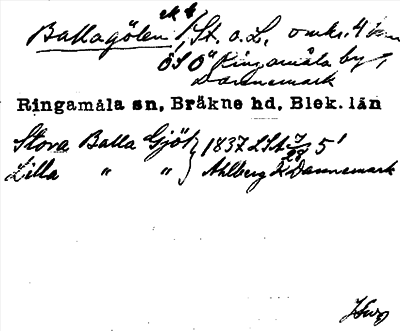 ek bl
Ballagölen, St. o. L. omkr. 4 km
ÖSÖ Ringamåla by,
Dannemark
Ringamåla sn, Bräkne hd, Blek. län
Stora Balla Gjöl } 1837 LSt 5'
Lilla " " } Ahlberg K Dannemark